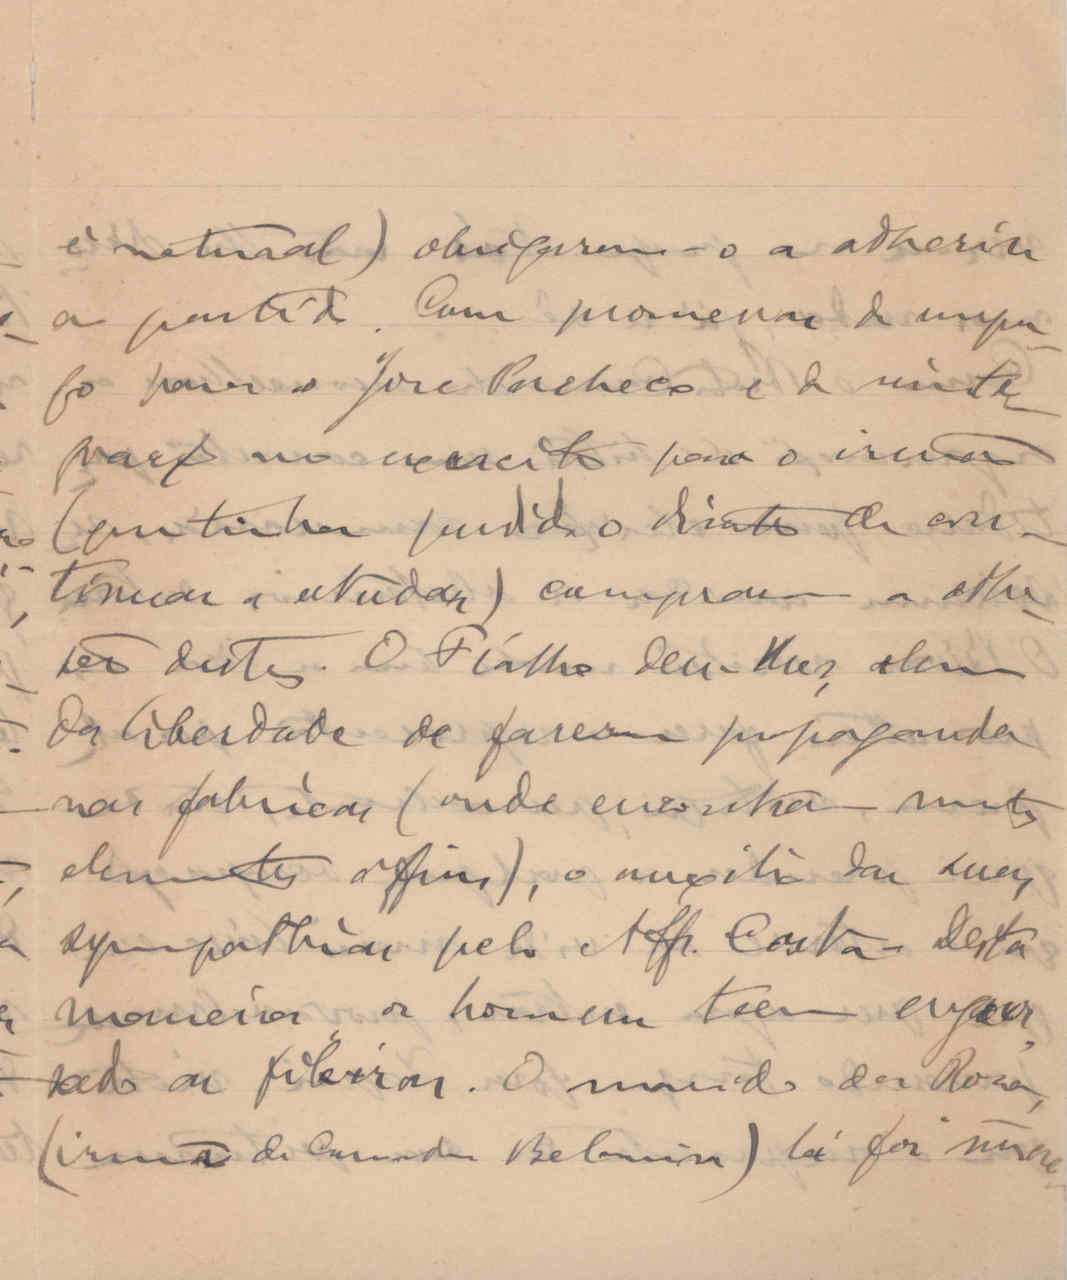 é natural) obrigaram-o a adherir
ao partido. Com promessas de empre-
go para o José Pacheco e de
no exercito para o irmão
(que tinha perdido o direito de con-
tinuar a estudar) compraram a adhe-
são destes. O Fialho deu-lhes, alem
da liberdade de fazerem propaganda
nas fabricas (onde encontram muitos
elementos affins), o auxilio das suas
sympathias pelo Aff. Costa. Desta
maneira, os homens teem engros-
sado as fileiras. O marido da Rosa,
(irmã do Belmira) lá foi